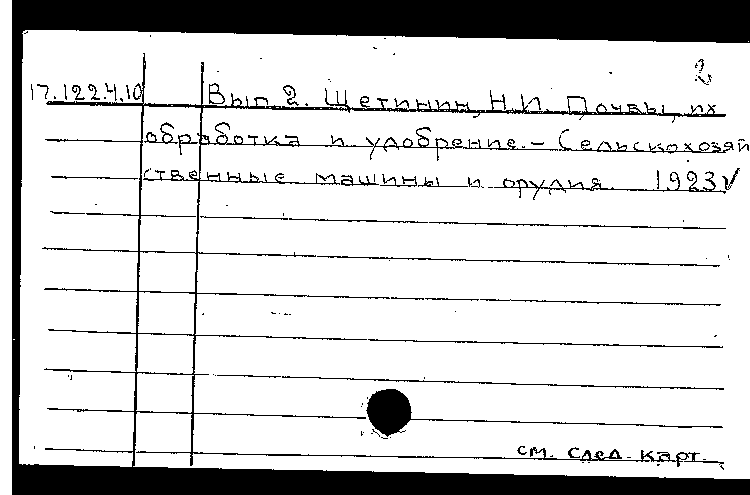 2
17.122.4.10 Вып. 2. Щетинин, Н.И. Почвы, их
обработка и удобрение. - Сельскохозяй
ственные машины и орудия. 1923 V
см. след. карт.